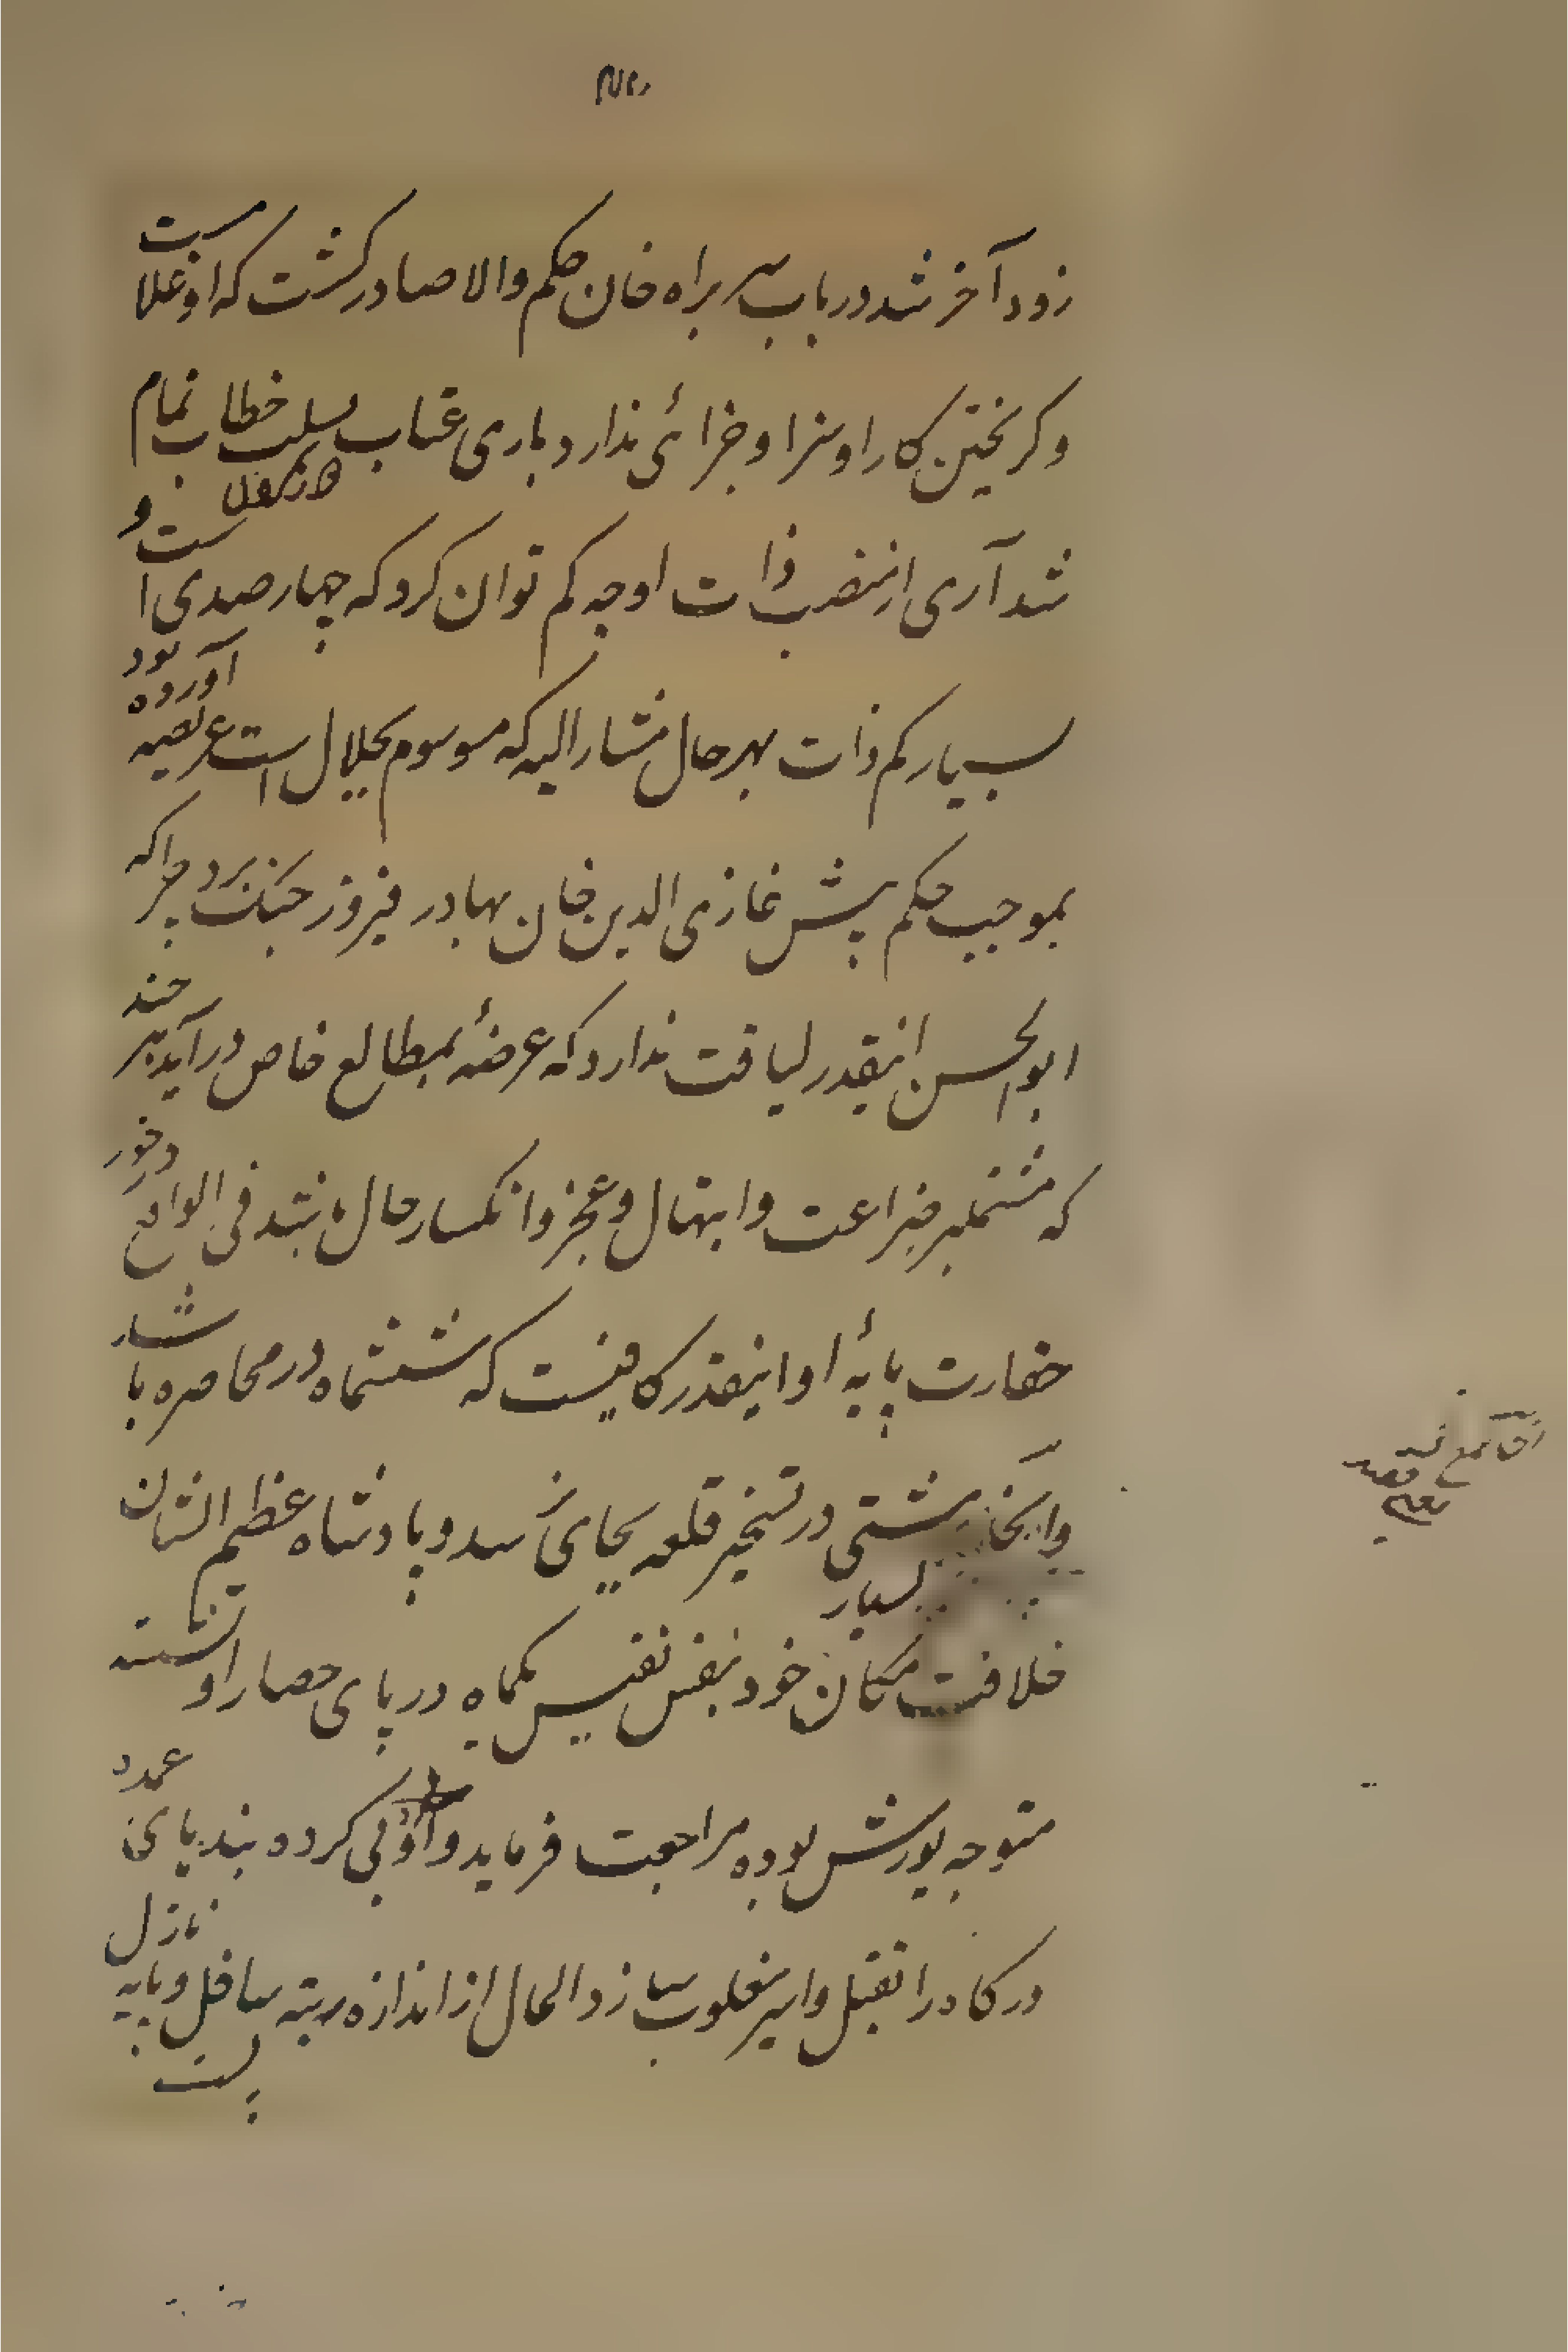 زود آخر شد در باب سربراه خان حکم والا صادر گشت که او غلامست
و کریختن کار او سزا و جزائی ندارد باری عتاب بسلب خطاب تمام
شد آری از منصب ذات او چه کم توان کرد که چهار صدی است و
بسیار کم ذات بهر حال مشار الیه که موسوم بجلال است عریضه آورده بود
بموجب حکم پیش غازی الدین خان بهادر فیروز جنک برد چرا که
ابوالحسن اینقدر لیاقت ندارد که عرضهٔ بمطالع خاص در آید هر چند
که مشتملبر ضراعت و ابتهال و عجز و انکسار حال باشد فی الواقع در خور
حقارت پایهٔ او اینقدر کافیست که ششماه در محاصره با
و اینجا مشتی در تسخیر قلعه بجای نرسد و پادشاه عظیم الشان
خلافت مکان خود بنفس نفیس یکماه در پای حصار او نشسته
متوجه یورش بوده مراجعت فرماید و او بی کرده بندیای عمده
درکاه را بقتل و اسیر مغلوب سازد الحال از اندازه رتبه سافل و پایه نازل
پست